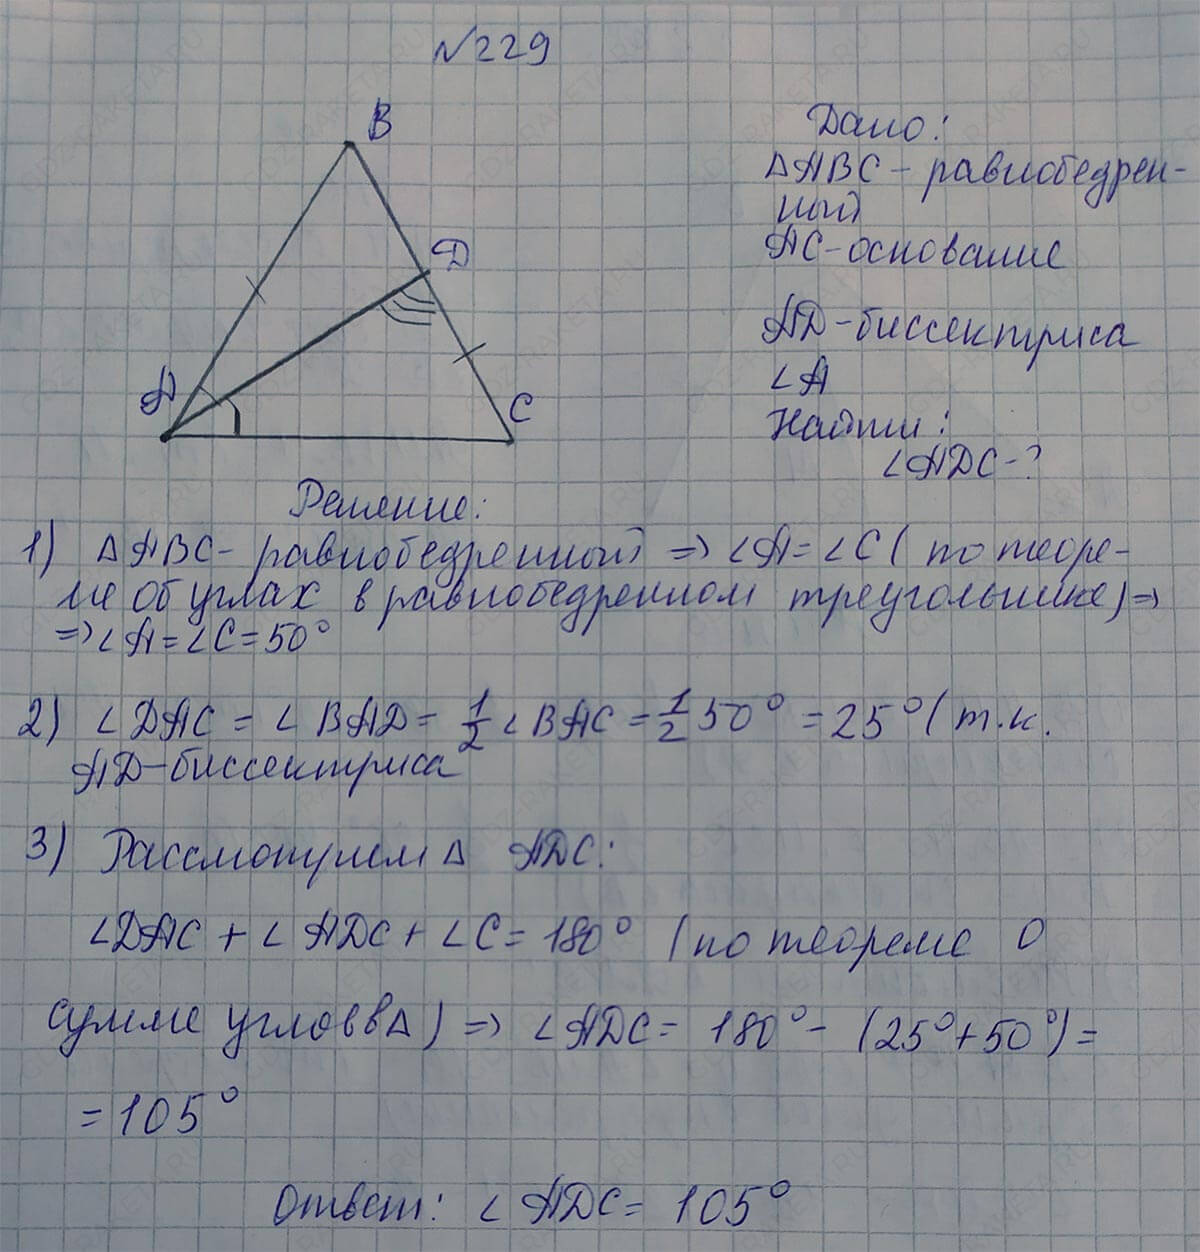 №229
B
D
A
C
Дано:
△ABC - равнобедрен-
ный
AC - основание
AD - биссектриса
∠A
Найти:
∠ADC - ?
Решение:
1) △ABC - равнобедренный => ∠A = ∠C ( по теоре-
ме об углах в равнобедренном треугольнике) =>
=> ∠A = ∠C = 50°
2) ∠DAC = ∠BAD = 1/2 ∠BAC = 1/2 50° = 25° ( т.к.
AD - биссектриса
3) Рассмотрим △ ADC:
∠DAC + ∠ADC + ∠C = 180° (по теореме о
сумме углов в △) => ∠ADC = 180° - (25° + 50°) =
= 105°
Ответ: ∠ADC = 105°